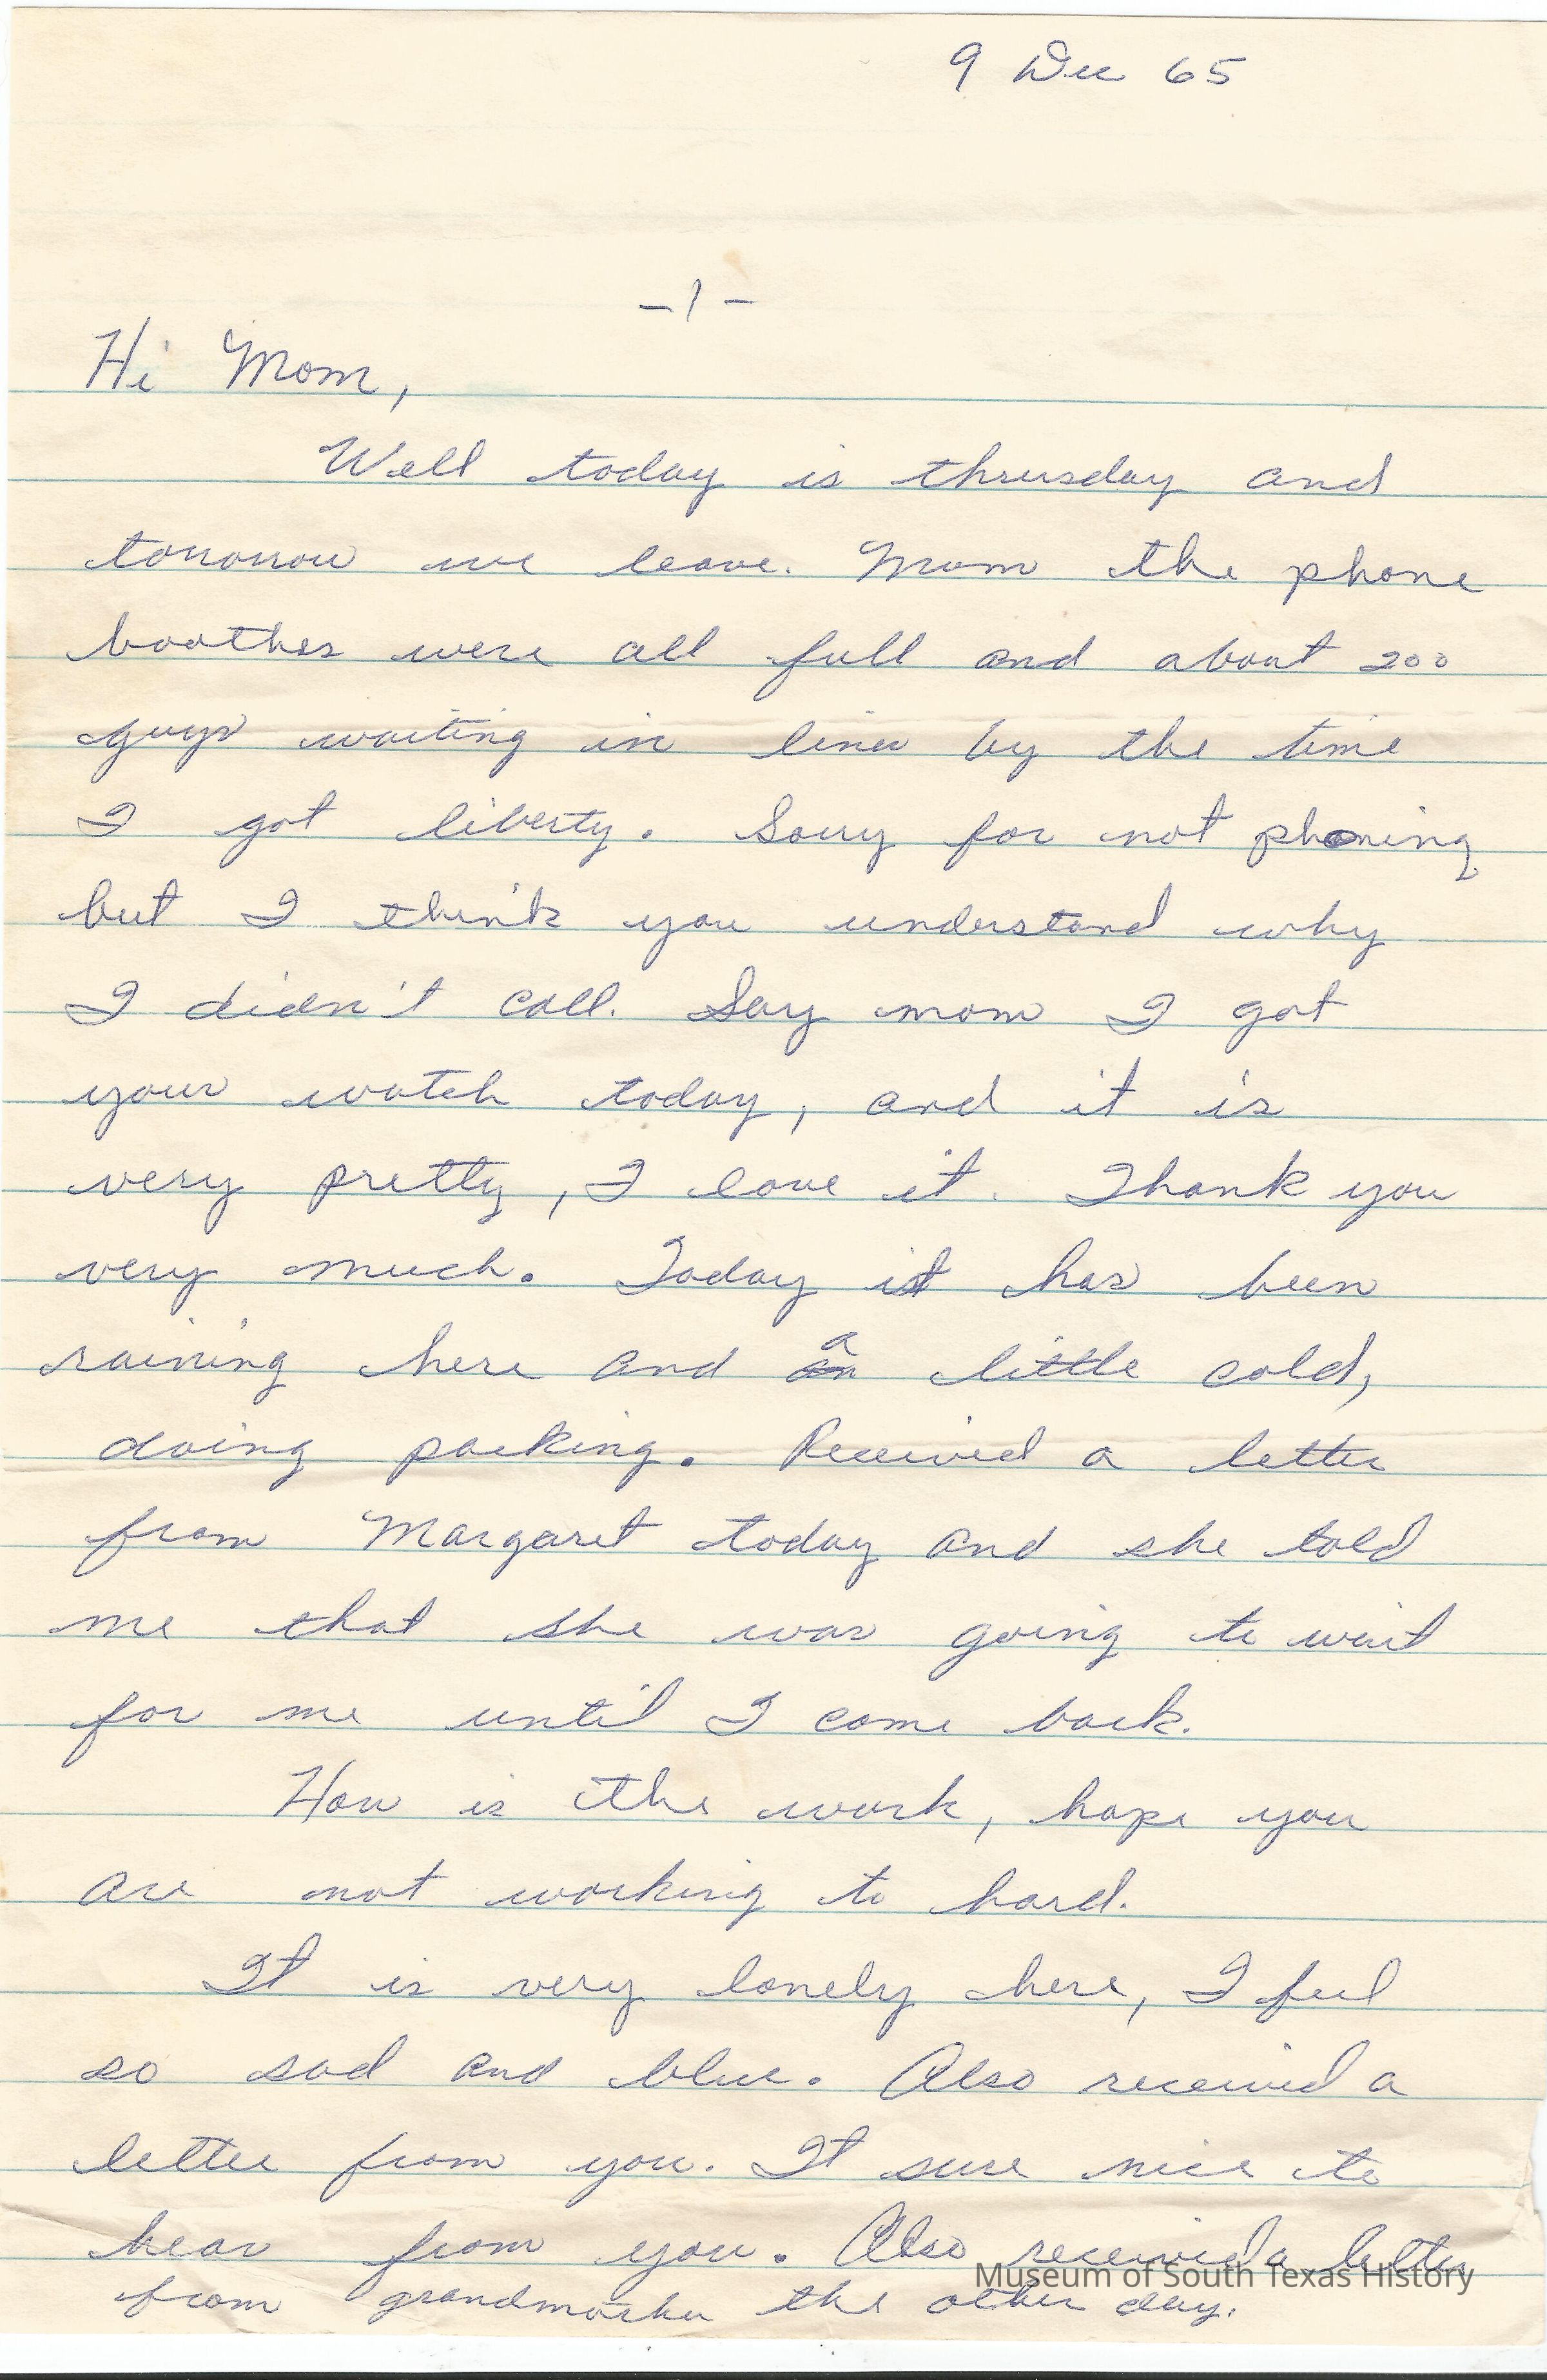 9 Dec 65
-1-
Hi Mom,
Well today is thrusday and
tomorrow we leave. Mom the phone
boothes were all full and about 200
guys waiting in lines by the time
I got liberty. Sorry for not phoning
but I think you understand why
I didn't call. Say mom I got
your watch today, and it is
very pretty, I love it. Thank you
very much. Today it has been
raining here and a little cold,
doing packing. Received a letter
from Margaret today and she told
me that she was going to wait
for me until I come back.
How is the work, hope you
are not working to hard.
It is very lonely here, I feel
so sad and blue. Also received a
letter from you. It sure nice to
hear from you. Also received a letter
from grandmother the other day.
Museum of South Texas History